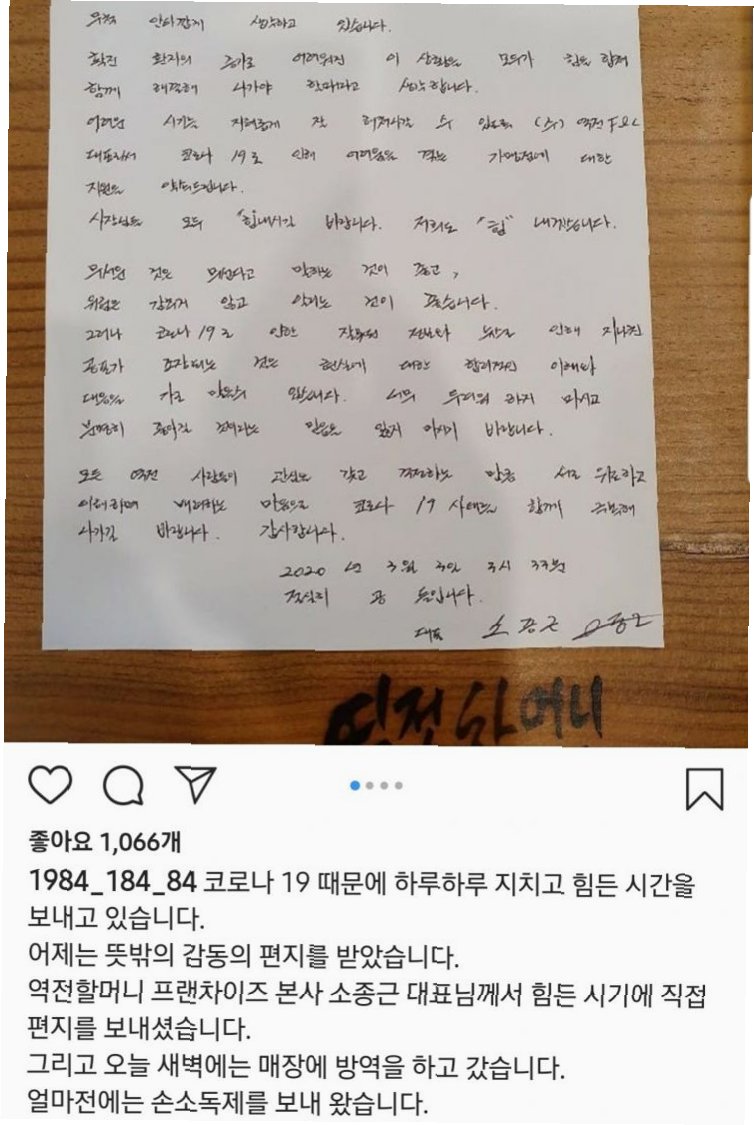 무척 안타깝게 생각하고 있습니다.
확진 환자의 증가로 어려워진 이 상황은 모두가 힘을 합쳐
함께 해결해 나가야 한다고 생각합니다.
어려운 시기를 지혜롭게 잘 헤쳐나갈 수 있도록 (주) 역전 F&C
대표로서 코로나 19로 인해 어려움을 겪는 가맹점에 대한
지원을 약속드립니다.
사장님들 모두 "힘내시길 바랍니다. 저희도 "힘" 내겠습니다.
무서운 것은 무섭다고 말하는 것이 좋고,
위험은 감추지 않고 알리는 것이 좋습니다.
그러나 코로나 19로 인한 잘못된 정보와 뉴스로 인해 지나친
공포가 조장되는 것은 현실에 대한 합리적인 이해와
대응을 가로 막을 수 있습니다. 너무 두려워 하지 마시고
분명히 좋아질 것이라는 믿음을 잃지 마시기 바랍니다.
모든 역전 사람들이 관심을 갖고 걱정하는 만큼 서로 위로하고
이해하며 배려하는 마음으로 코로나 19 사태를 함께 극복해
나가길 바랍니다. 감사합니다.
2020 년 3월 3일 3시 33분
대표 소종근
역전할머니
좋아요 1,066개
1984_184_84 코로나 19 때문에 하루하루 지치고 힘든 시간을
보내고 있습니다.
어제는 뜻밖의 감동의 편지를 받았습니다.
역전할머니 프랜차이즈 본사 소종근 대표님께서 힘든 시기에 직접
편지를 보내셨습니다.
그리고 오늘 새벽에는 매장에 방역을 하고 갔습니다.
얼마전에는 손소독제를 보내 왔습니다.